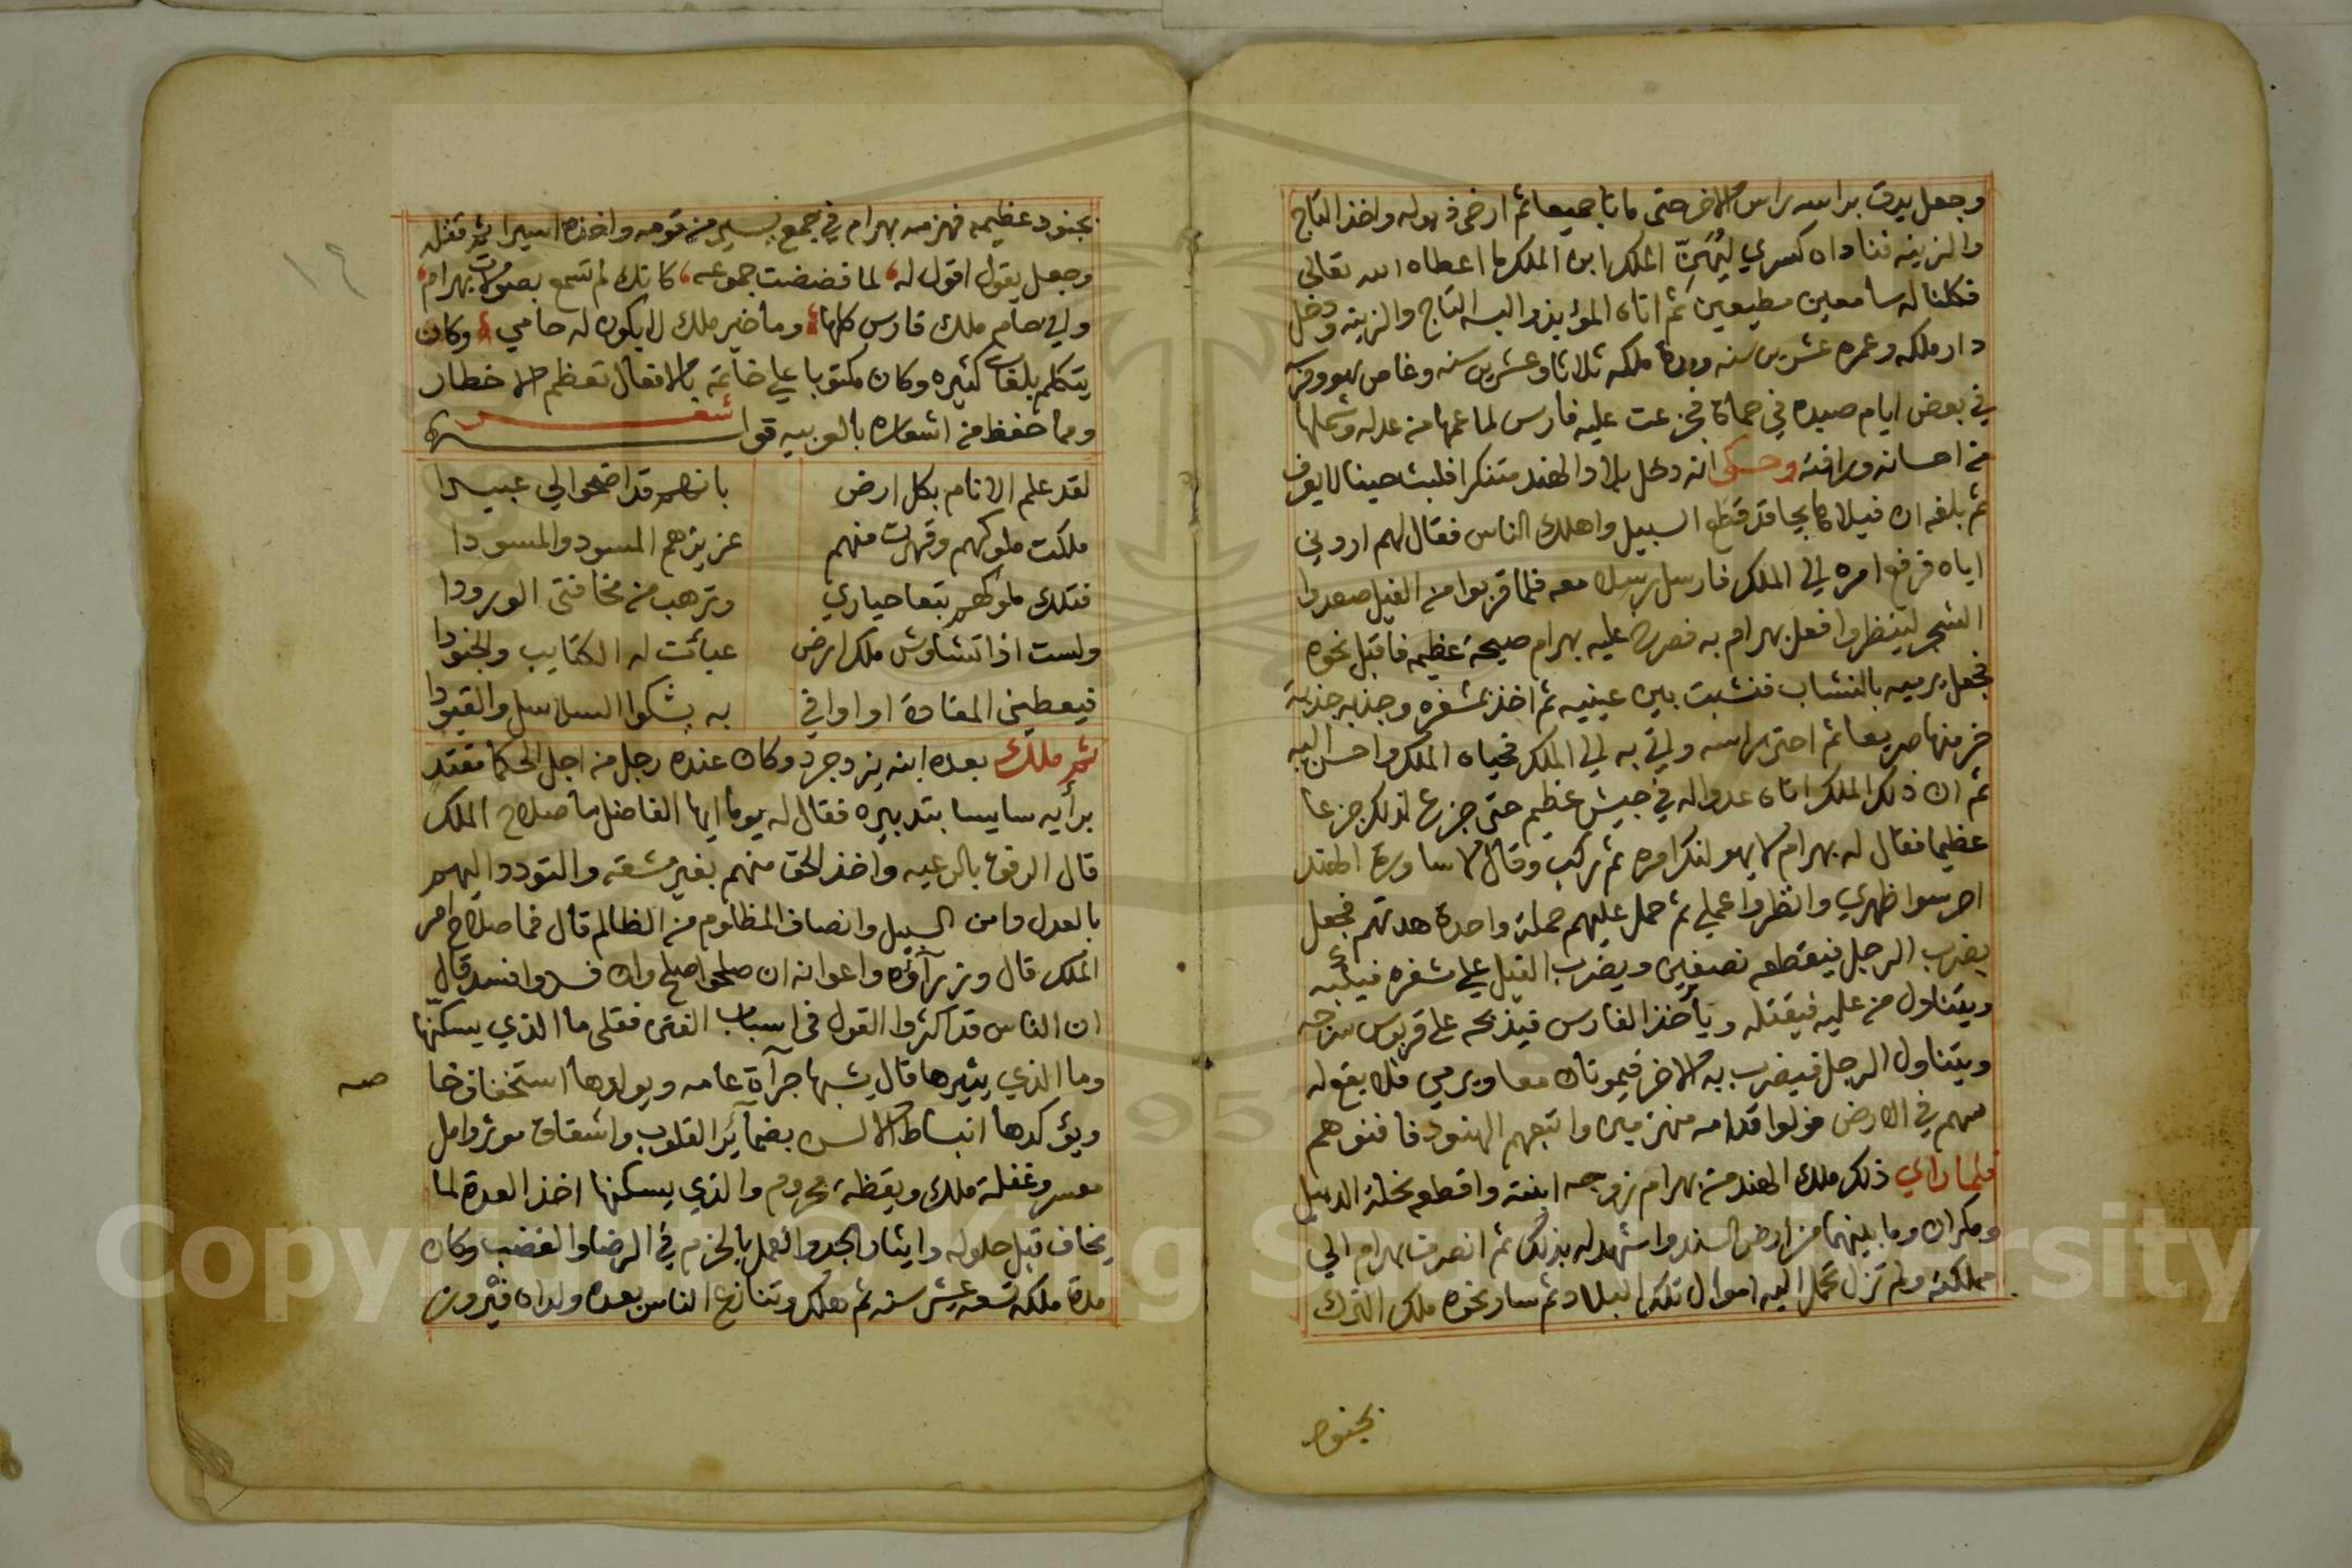 وجعل يدق براسه راس الاخر حتى ماتا جميعا ثم ارضى ذبوله واخذ التاج
والزينه فناداه كسري ليُهَنِّ الملك ابن الملك ما اعطاه الله تعالى
فكلنا له سامعين مطيعين ثم اتاه المؤبذ والبسه التاج والزينه ودخل
دار ملكه وعمره عشرين سنه ومدة ملكه ثلاثا وعشرين سنه وغاص هو وفرسه
في بعض ايام صيده في حماة فجزعت عليه فارس لما عمها من عدله وشملها
من احسانه ورافته وحكى انه دخل بلاد الهند متنكرا فلبث حينا لا يعرف
ثم بلغه ان فيلا هايجا قد قطع السبيل واهلك الناس فقال لهم اروني
اياه فرفع امره الي الملك فارسل رسلا معه فلما قربوا من الفيل صعدوا
الشجر لينظروا فعل بهرام به فصرخ عليه بهرام صيحة عظيمه فاقبل نحوه
فجعل يرميه بالنشاب فنشبت بين عينيه ثم اخذ بمشفره وجذبه جذبة
خر منها صريعا ثم احتز راسه واتي به الي الملك فحياه الملك واحسن اليه
ثم ان ذلك الملك اتاه عدو له في جيش عظيم حتى جزع لذلك جزعا
عظيما فقال له بهرام لا يهولنك امره ثم ركب وقال لاساورة الهند
احرسوا ظهري وانظروا عملي ثم حمل عليهم حملة واحدة هدتهم فجعل
يضرب الرجل فيقطعه نصفين ويضرب الفيل علي مشفره فيكبه
ويتناول من عليه فيقتله ويأخذ الفارس فيذبحه على قربوس سرجه
ويتناول الرجل فيضرب به الاخر فيموتان معا ويرمي فلا يقع له
سهم في الارض فولوا قدامه منهزمين واتبعهم الهنود فافنوهم
فلما راي ذلك ملك الهند من بهرام زوجه ابنته واقطعه نحلة الدبيل
ومكران وما بينهما من ارض السند واشهد له بذلك ثم انصرف بهرام الي
مملكته ولم تزل تحمل اليه اموال تلك البلاد ثم سار نحوه ملك الترك
بجنود
١٩
بجنود عظيمه فهزمه بهرام في جمع يسير من قومه واخذه اسيرا ثم قتله
وجعل يقول اقول له لما فضضت جموعه كانك لم تسمع بصولات بهرام
واني حام ملك فارس كلها وما خير ملك لا يكون له حامي وكان
يتكلم بلغات كثيره وكان مكتوبا علي خاتمه بالافعال تعظم الاخطار
ومما حفظ من اشعاره بالعربيه قوله شعر
لقد علم الانام بكل ارض بانهم قد اضحوا لي عبيدا
ملكت ملوكهم وقهرت منهم عزيزهم المسود والمسودا
فتلك ملوكهم تبتغا حياري وترهب من مخافتى الورودا
ولست اذا تشاوش ملك ارض عبائت له الكتايب والجنودا
فيعطيني المقادة او اوافي به يشكوا السلاسل والقيودا
ثم ملك بعده ابنه يزدجرد وكان عنده رجل من اجل الحكما مقتد
برأيه سايسا بتدبيره فقال له يوما ايها الفاضل ما صلاح الملك
قال الرفق بالرعيه واخذ الحق منهم بغير مشقه والتودد اليهم
بالعدل وامن السبيل وانصاف المظلوم من الظالم قال فما صلاح امر
الملك قال وزرآؤه واعوانه ان صلحوا صلح وان فسدوا فسد قال
ان الناس قد اكثروا القول في اسباب الفتن فقلى ما الذي يسكنها
وما الذي يثيرها قال يشبها جرآة عامه ويولدها استخفاف خا
صه
ويؤكدها انبساط الالسن بضمآئر القلوب واشفاق موثر وامل
معسر وغفلة ملك ويقظة محروم والذي يسكنها اخذ العدة لما
يخاف قبل حلوله وايثار الجد والعمل بالحزم في الرضا والغضب وكان
مدة ملكه تسعه عشر سنه ثم هلك وتنازع الناس بعده ولداه فيروز